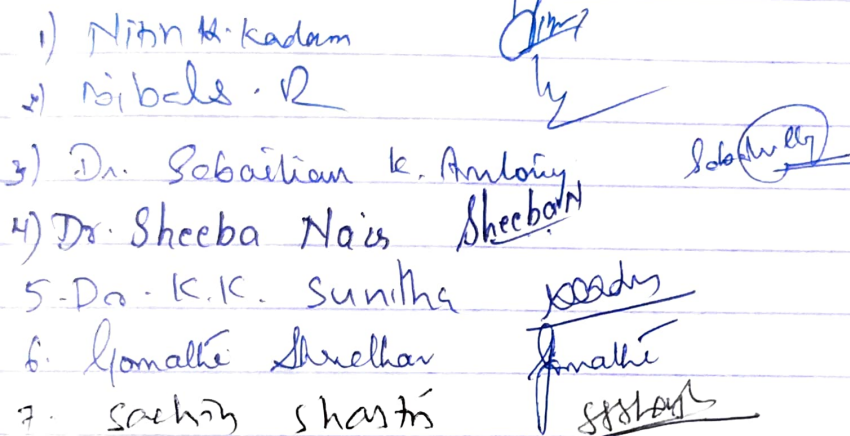 1) Nitin K. Kadam
2) Bibals. R
3) Dr. Sebastian K. Antony
4) Dr. Sheeba Nair SheebaN
5. Dr. K.K. Sunitha
6. Gomathi Shridhar Gomathi
7. Sachin Shastri